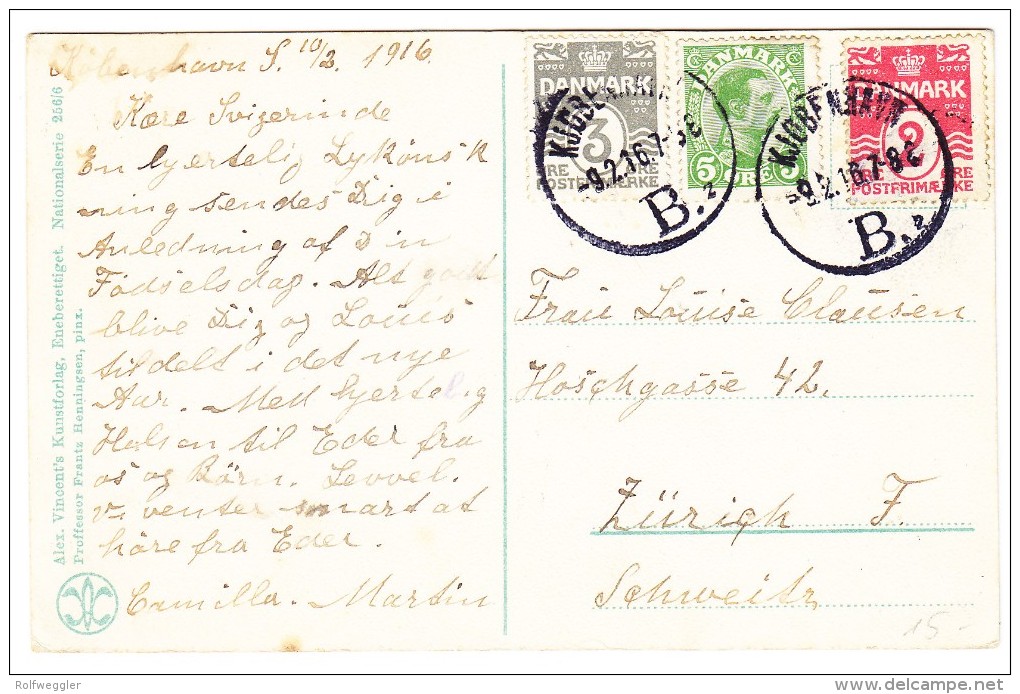 København S. 10/2. 1916.
Kære Svigerinde
En hjertelig Lykönsk
ning sendes Dig i
Anledning af Din
Födselsdag. Alt godt
blive Dig og Louis
tildelt i det nye
Aar. Med hjertelig
Hilsen til Eder fra
os og Börn. Levvel.
vi venter snart at
höre fra Eder.
Camilla. Martin
Alex. Vincent's Kunstforlag, Eneberettiget. Nationalserie 256/6
Proffessor Frantz Henningsen, pinx.
DANMARK
3
ØRE
POSTFRIMÆRKE
DANMARK
5 ØRE 5
DANMARK
2
ØRE ØRE
POSTFRIMÆRKE
KJØBENHAVN
-9.2.16.7-8E
B.2
KJØBENHAVN
-9.2.16.7-8E
B.2
Frau Louise Clausen
Höschgasse 42.
Zürich F.
Schweitz
15-
Rolfweggler
delcampe.net